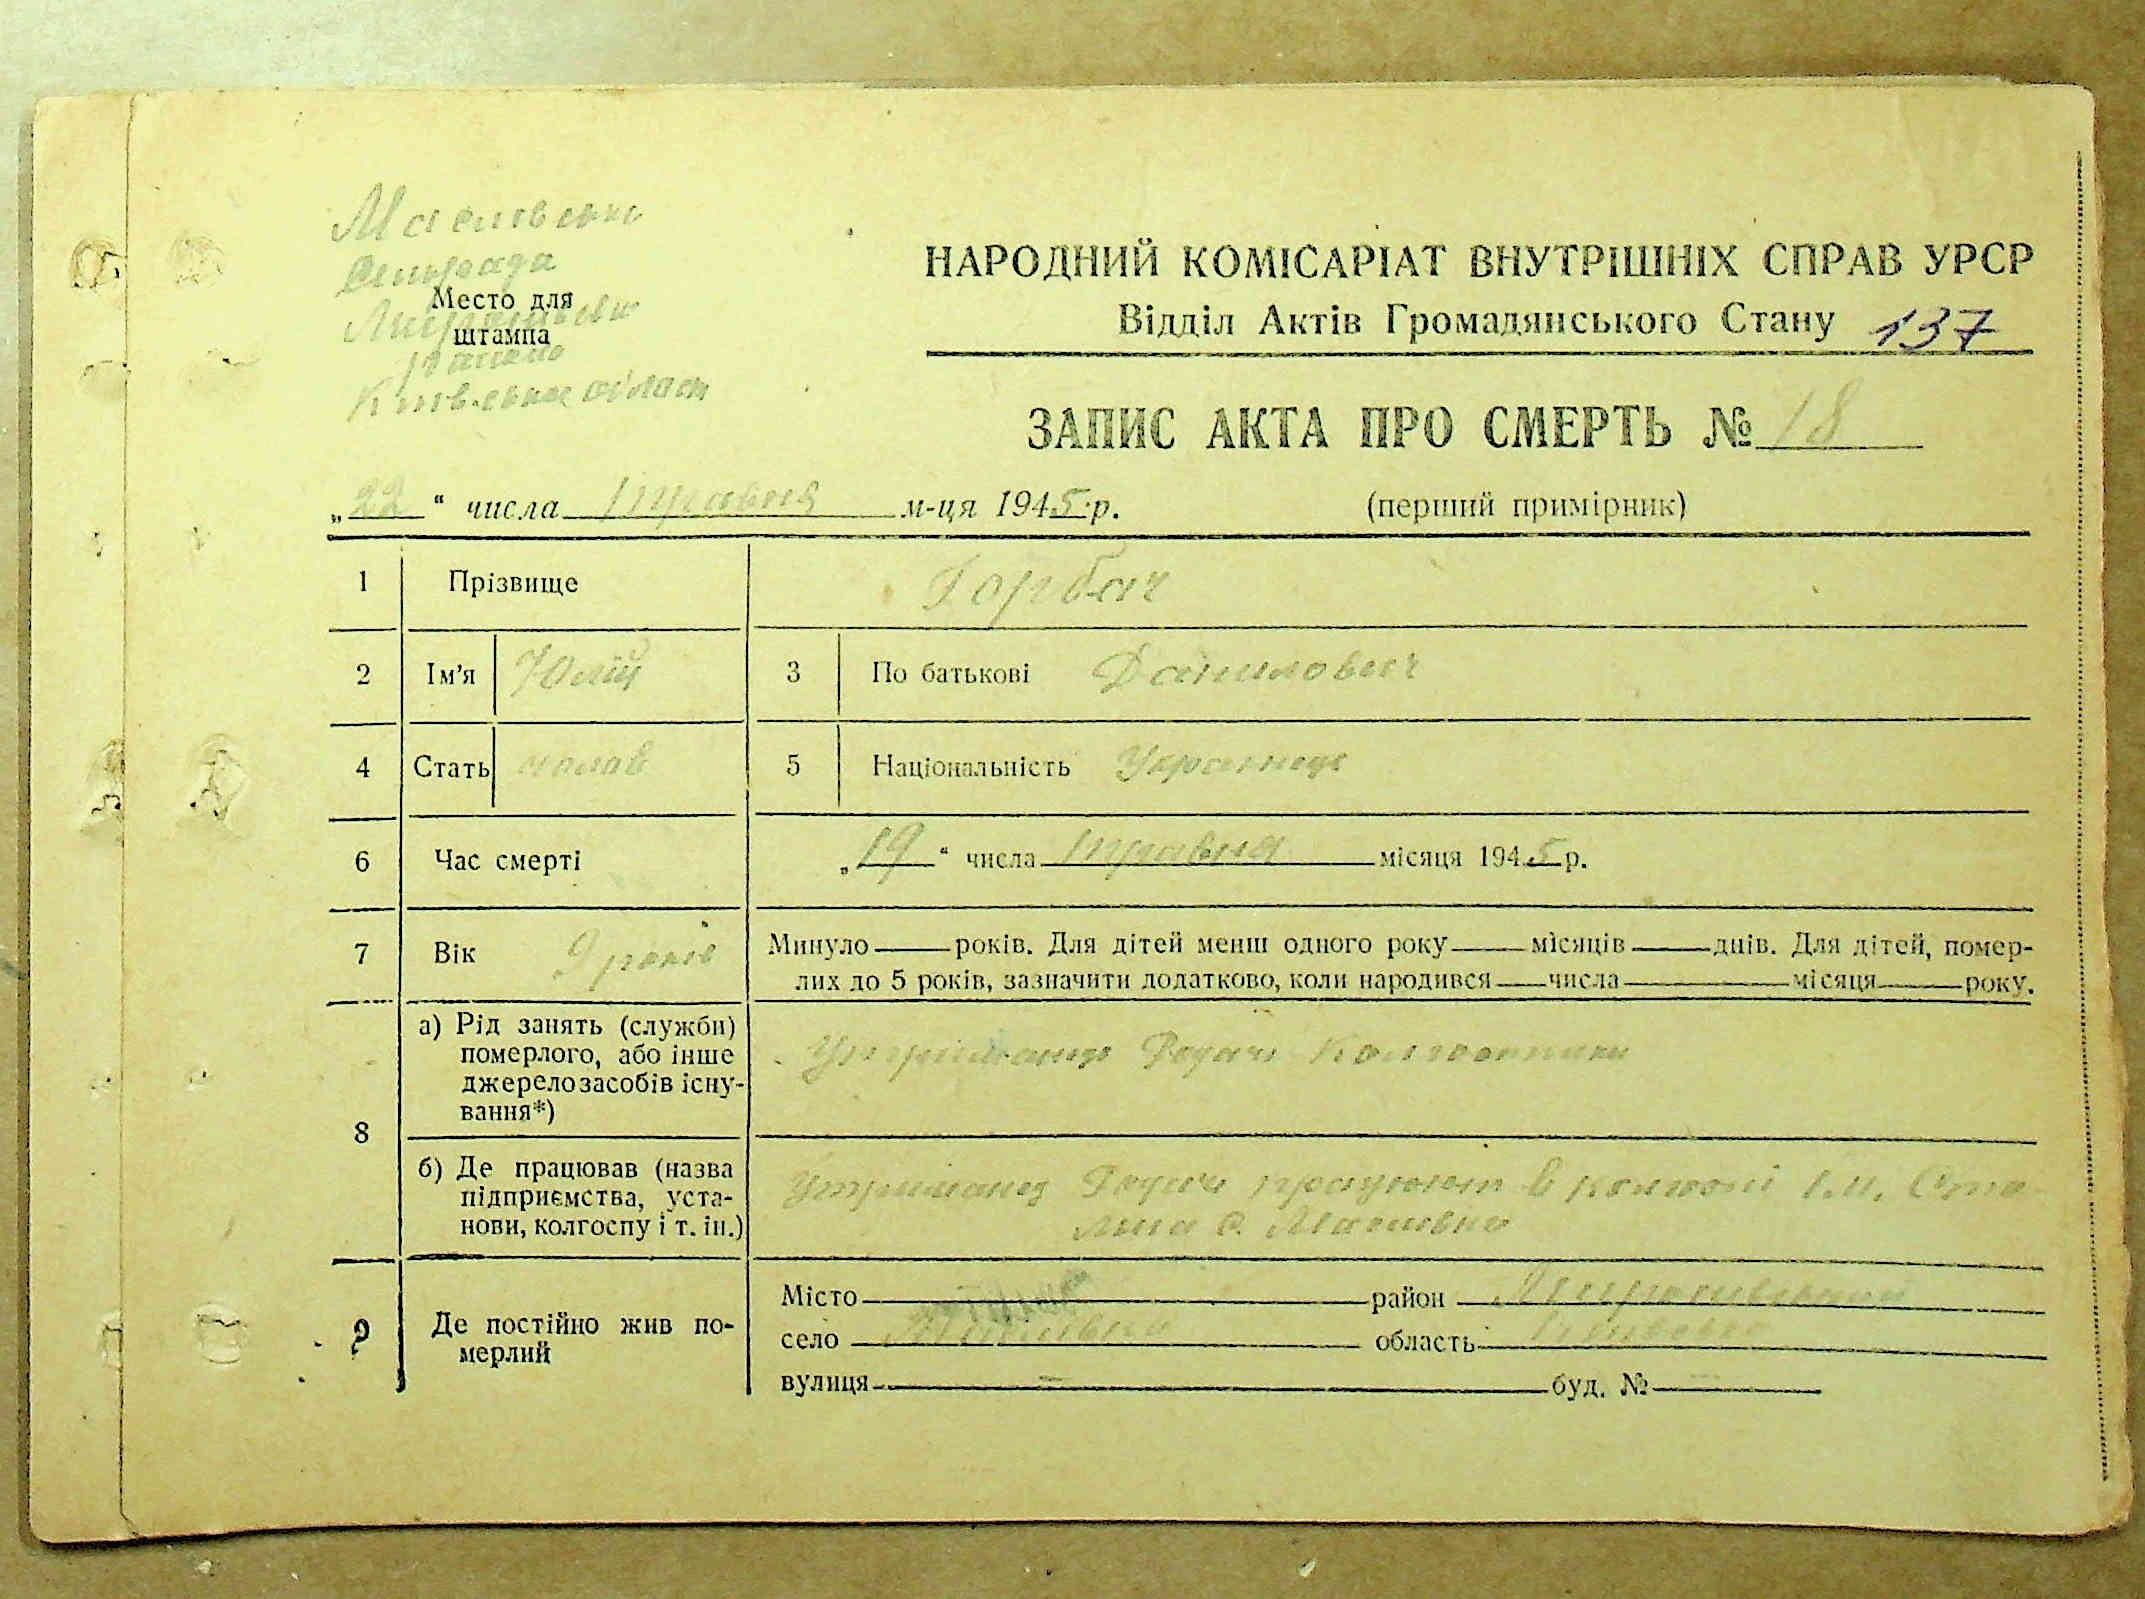 Маслівська
сільрада
Место для
штампа
Миронівськ
району
Київська област
НАРОДНИЙ КОМІСАРІАТ ВНУТРІШНІХ СПРАВ УРСР
Відділ Актів Громадянського Стану 137
ЗАПИС АКТА ПРО СМЕРТЬ № 18
„22“ числа травня м-ця 1945 р.
(перший примірник)
1 Прізвище Горбач
2 Ім'я Юлій 3 По батькові Данилович
4 Стать чолов 5 Національність Українець
6 Час смерті „19“ числа травня місяця 1945 р.
7 Вік 9 років Минуло років. Для дітей менш одного року місяців днів. Для дітей, помер-
лих до 5 років, зазначити додатково, коли народився числа місяця року.
8 а) Рід занять (служби)
померлого, або інше
джерело засобів існу-
вання*)
Утриманець Родичі Колгоспники
б) Де працював (назва
підприємства, уста-
нови, колгоспу і т. ін.)
Утриманец Родичі працюют в колгоспі ім. Ста-
ліна с. Маслівка
9 Де постійно жив по-
мерлий
Місто район Миронівський
село Маслівка область Київська
вулиця — буд. № —